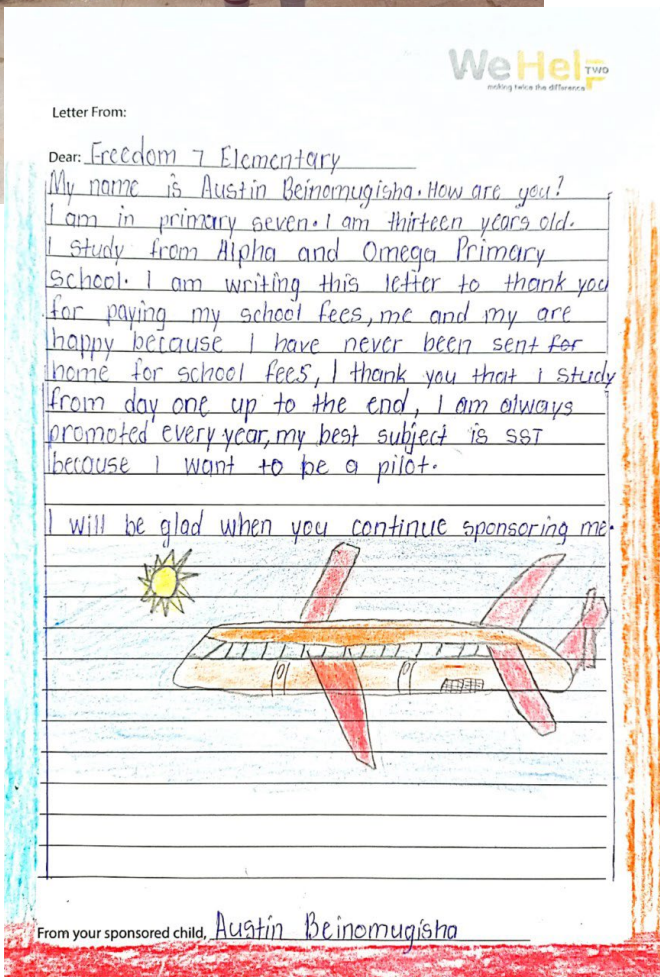 We Help TWO
making twice the difference
Letter From:
Dear: Freedom 7 Elementary
My name is Austin Beinomugisha. How are you?
I am in primary seven. I am thirteen years old.
I study from Alpha and Omega Primary
school. I am writing this letter to thank you
for paying my school fees, me and my are
happy because I have never been sent for
home for school fees, I thank you that i study
from day one up to the end, I am always
promoted every year, my best subject is SST
because I want to be a pilot.
I will be glad when you continue sponsoring me.
From your sponsored child, Austin Beinomugisha